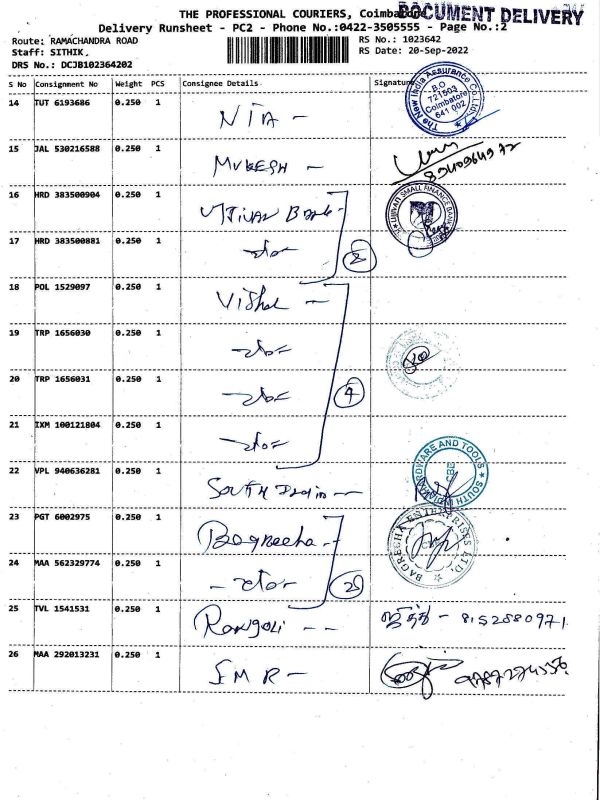 THE PROFESSIONAL COURIERS, Coimbatore
DOCUMENT DELIVERY
Delivery Runsheet - PC2 - Phone No.:0422-3505555 - Page No.:2
Route: RAMACHANDRA ROAD RS No.: 1023642
Staff: SITHIK, RS Date: 20-Sep-2022
DRS No.: DCJB102364202
S No Consignment No Weight PCS Consignee Details Signature
14 TUT 6193686 0.250 1 NIA -
The New India Assurance Co. Ltd.
B.O
721503
Coimbatore
641 002
15 JAL 530216588 0.250 1 MUKESH -
16 HRD 383500904 0.250 1 UJJIVAN Bank -
UJJIVAN SMALL FINANCE BANK
17 HRD 383500881 0.250 1 -do- 2
18 POL 1529097 0.250 1 Vishal -
19 TRP 1656030 0.250 1 -do-
20 TRP 1656031 0.250 1 -do- 4
21 IXM 100121804 0.250 1 -do-
22 VPL 940636281 0.250 1 South India -
SOUTH INDIA HARDWARE AND TOOLS
CBE
23 PGT 6002975 0.250 1 Bagreecha -
BAGRECHA ENTERPRISES LTD.
24 MAA 562329774 0.250 1 - do -
25 TVL 1541531 0.250 1 Rangoli - - ஜித் - 8152880971
26 MAA 292013231 0.250 1 SMR -